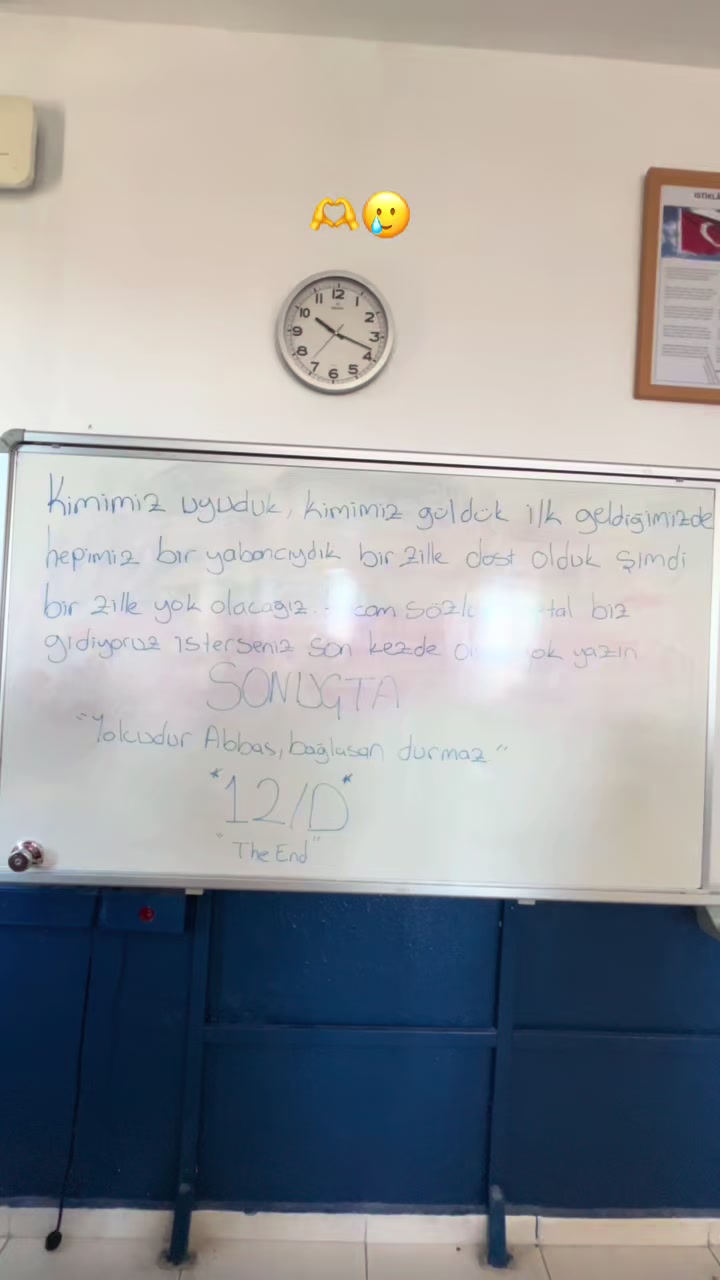 12
1
2
3
4
5
6
7
8
9
10
11
İSTİKLÂ
Kimimiz uyuduk, kimimiz güldük ilk geldiğimizde
hepimiz bir yabancıydık bir zille dost olduk Şimdi
bir zille yok olacağız.. biz
gidiyoruz isterseniz son kezde yok yazın
SONUÇTA
"Yolcudur Abbas, bağlasan durmaz"
*12/D*
"The End"